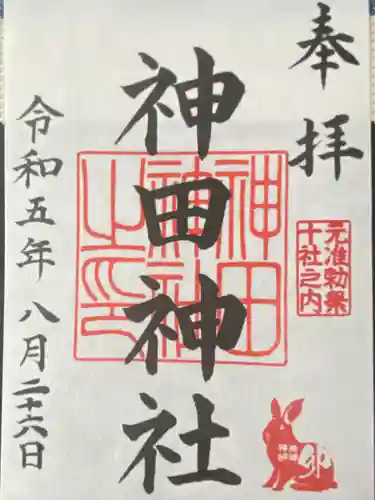 奉拝
元准勅祭
十社之内
卯
神田神社
神田
神社
之印
令和五年八月二十六日